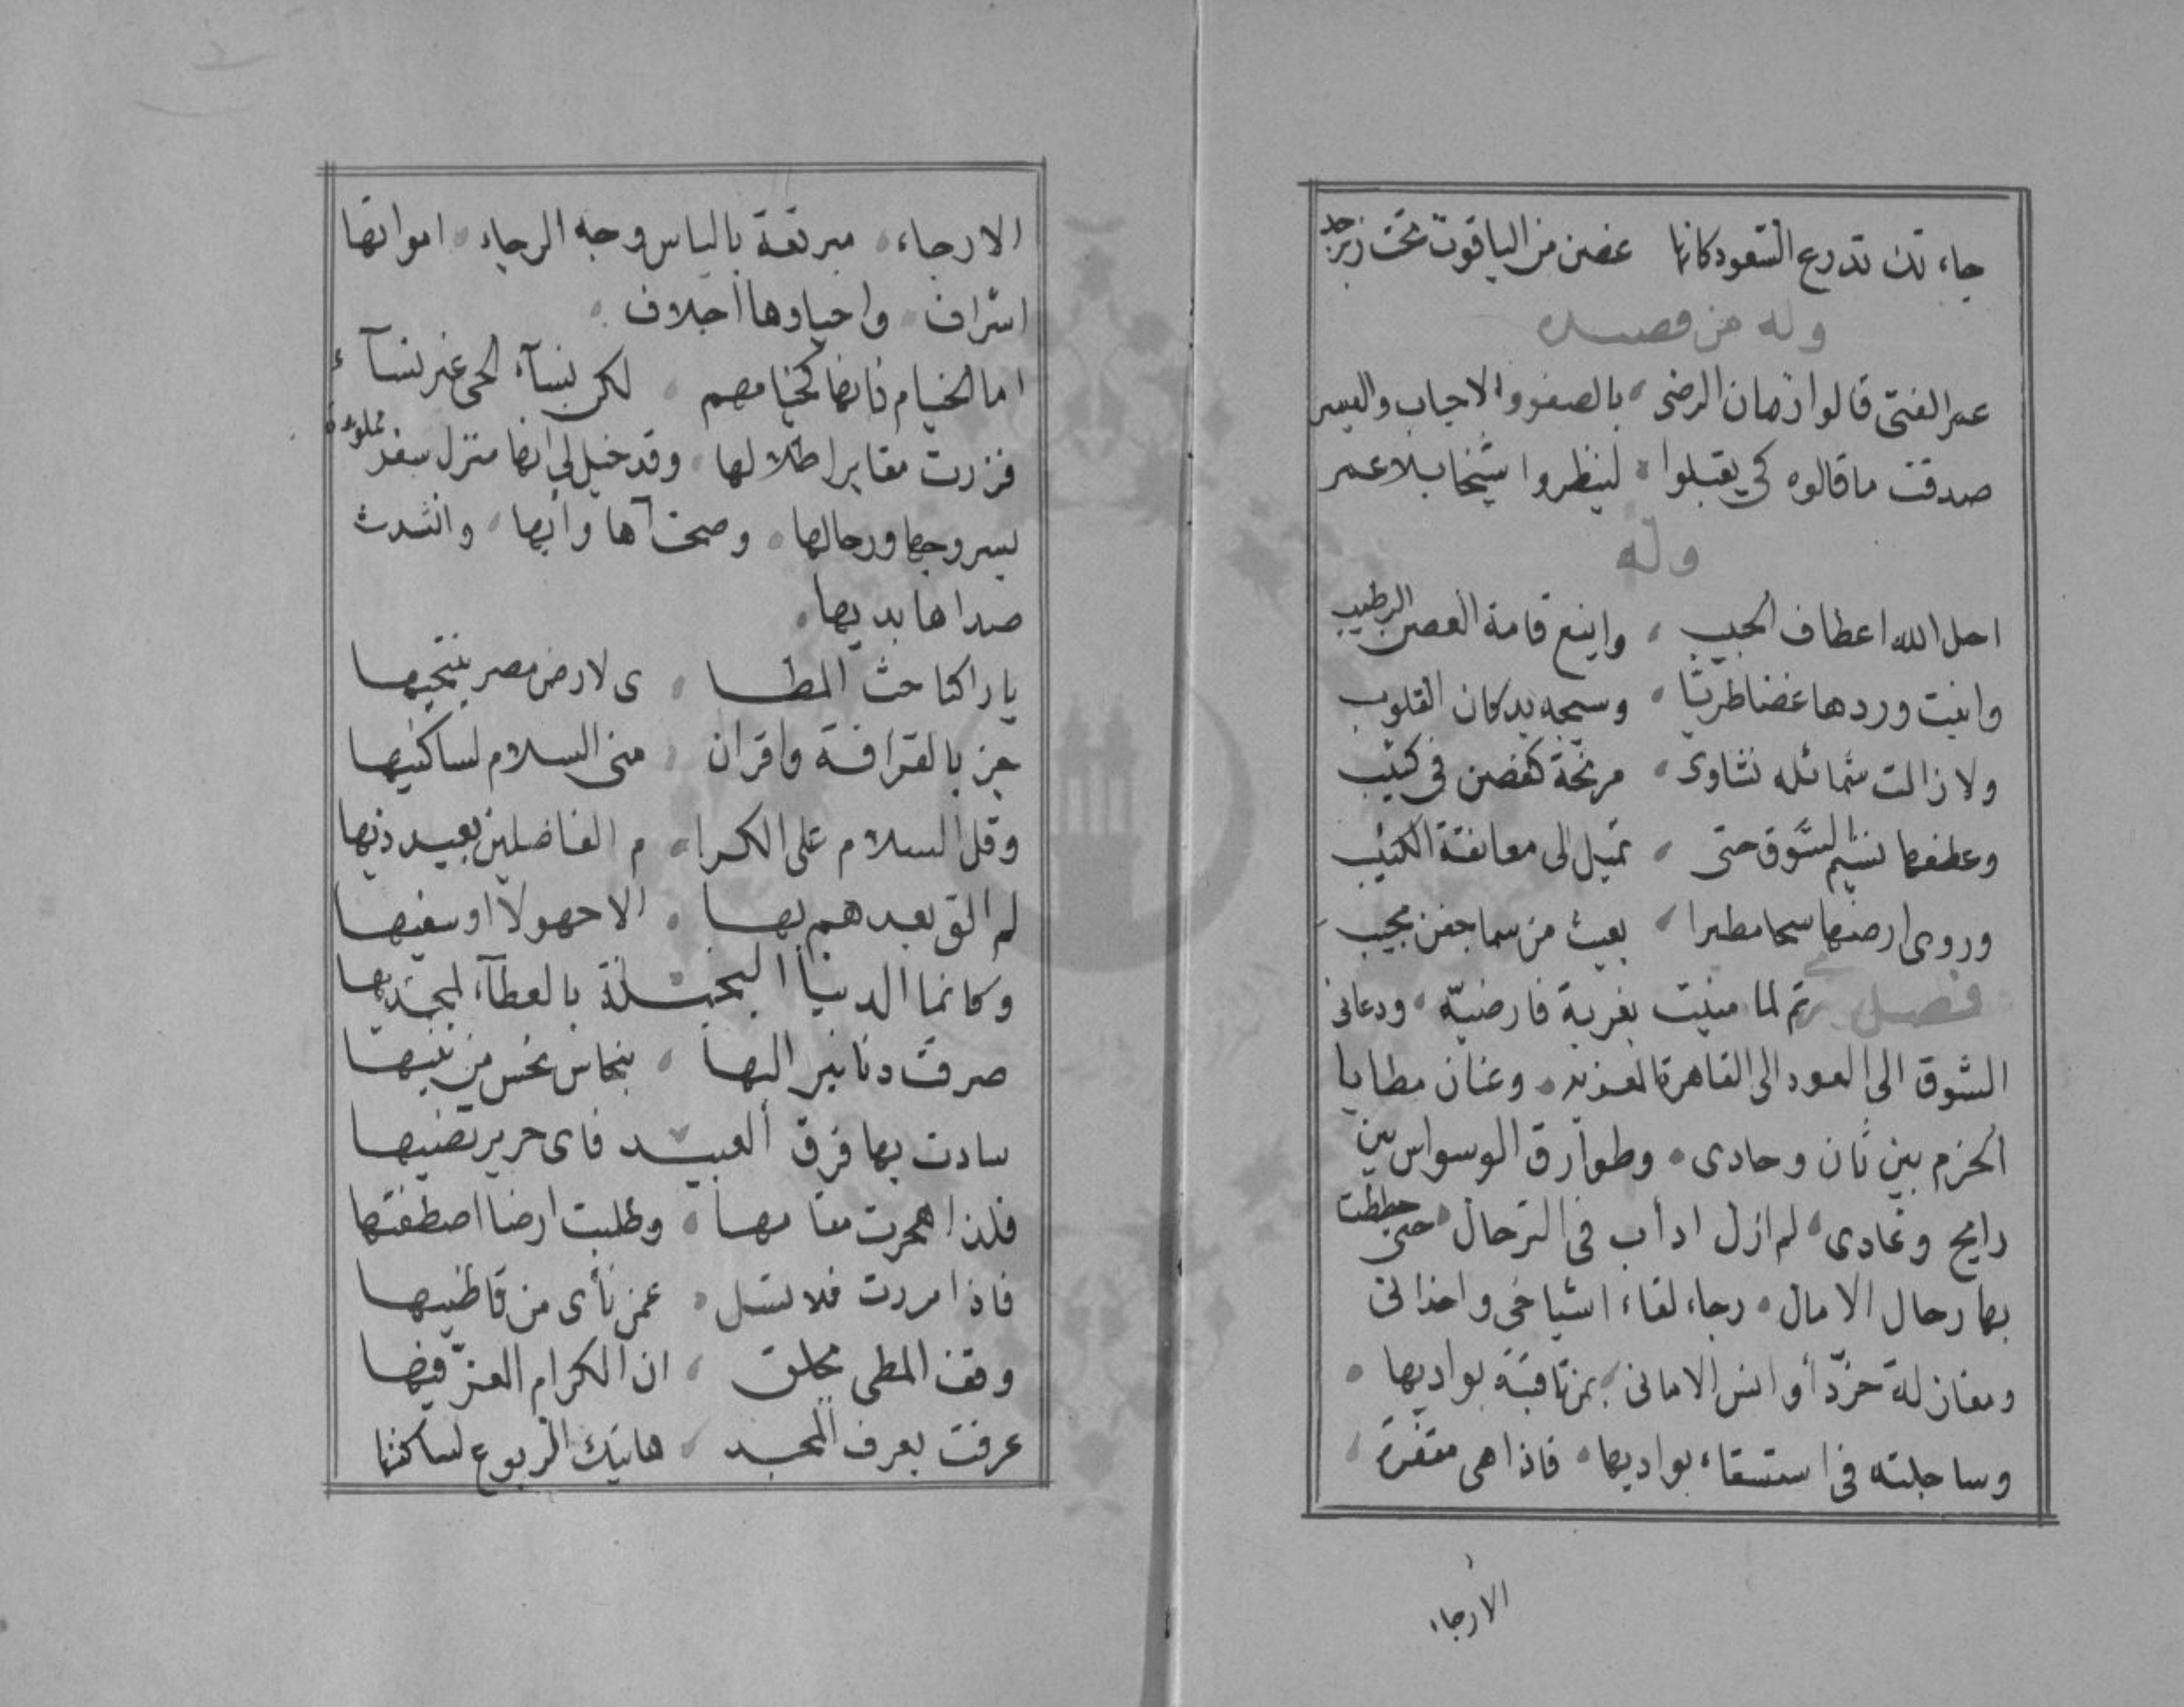 جاءتك تدرع السعود كانها غصن من الياقوت تحت زبرجد
وله من قصيده
عمر الفتى قالوا زمان الرضى بالصفو والاحباب واليسر
صدقت ما قالوه كي يقبلوا لينظروا شيخا بلا عمر
وله
احل الله اعطاف الحبيب واينع قامة الغصن الرطيب
وانبت وردها غضا طريا وسيجه بدكان القلوب
ولا زالت شمائله نشاوى مرنحة كغصن في كثيب
وعطفها نسيم الشوق حتى تميل الى معانقة الكئيب
وروى ارضها سحا مطيرا بعيث من سما جفن مجيب
فصل ثم لما منيت بغربة فارضيه ودعاني
الشوق الى العود الى القاهرة المعزيه وعنان مطايا
الحزم بين ثان وحادى وطوارق الوسواس بين
رايح وغادى لم ازل ادأب في الترحال حتى حططت
بها رحال الامال رجاء لقاء اشياخى واخدانى
ومغازلة خرّد أوانس الامانى بواديها
وساجلته فى استسقاء بواديها فاذا هى مقفرة
الارجاء
الارجاء مبرقعة بالياس وجه الرجاء امواتها
اشراف واحياوها اجلاف
اما الخيام فانها كخيامهم لكن نسآء الحى غير نسآء
فزرت مقابر اطلالها وقد خيل لي انها منزل سفر مملوءة
بسروجها ورحالها وصحت آها وأيها وانشدت
صداها بديها
يا راكبا حث المطا ى لارض مصر ينتحيها
جز بالقرافة واقران منى السلام لساكنيها
وقل السلام على الكرا م الفاضلين بعيد ذيها
لم الق بعدهم بها الا جهولا او سفيها
وكانما الدنيا البخيلة بالعطآء لمجتديها
صرفت دنانير البها بنحاس نحس من بنيها
سادت بها فرق العبيد فاى حر يرتضيها
فلذا هجرت مقامها وطلبت ارضا اصطفيها
فاذا مررت فلا تسل عمن نأى من قاطنيها
وقف المطى بجلق ان الكرام الغرّ فيها
عرفت بعرف المجد هاتيك الربوع لساكنها